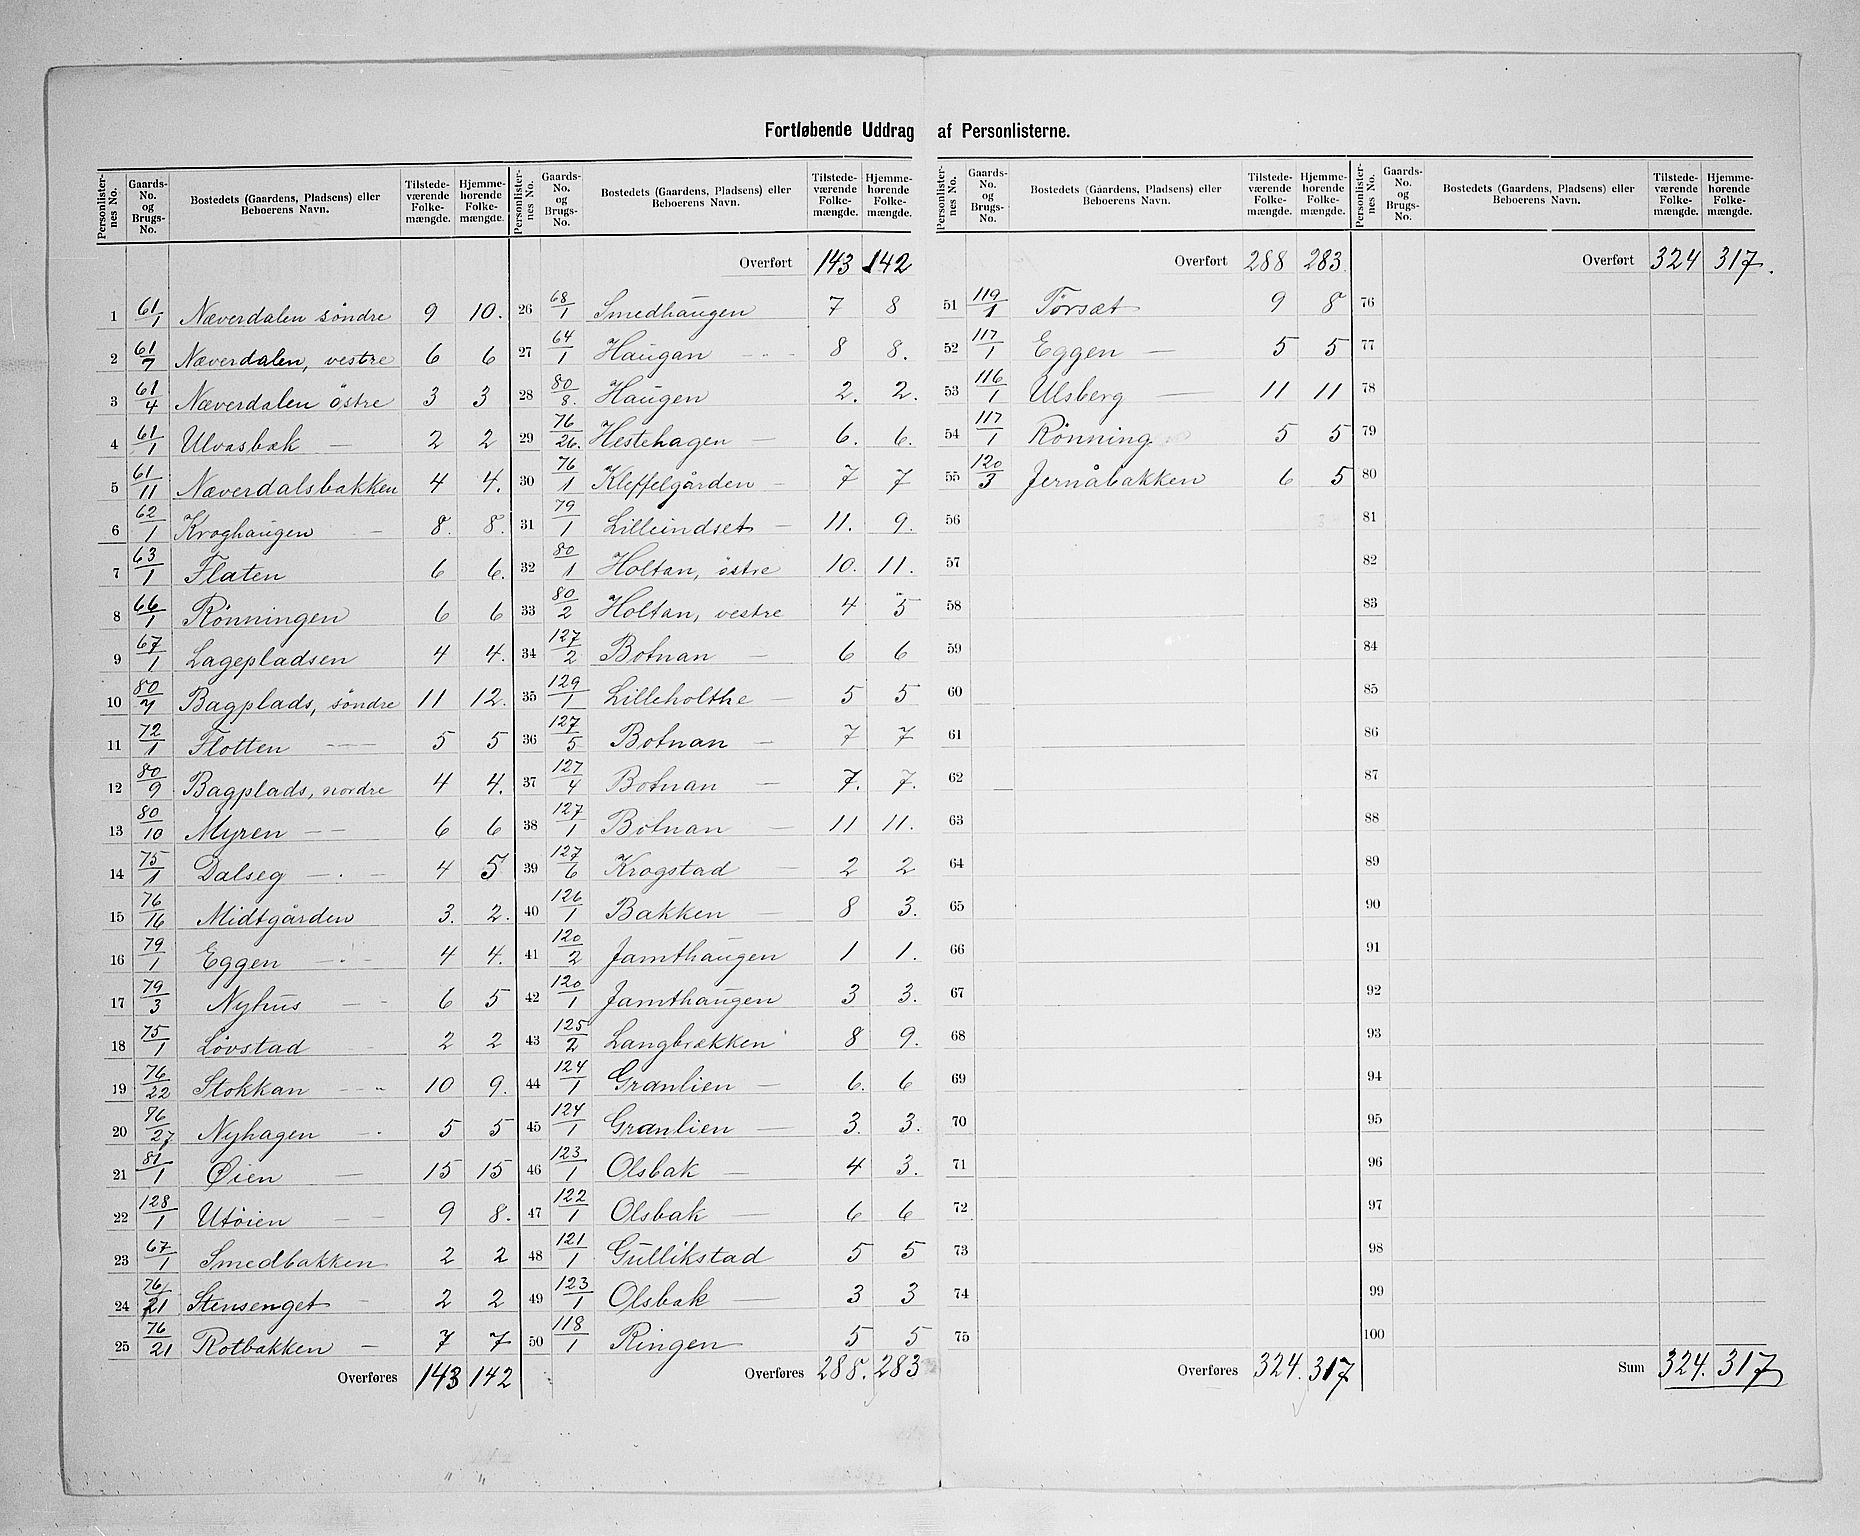 Fortløbende Uddrag af Personlisterne.
Personlister-nes No. | Gaards-No. og Brugs-No. | Bostedets (Gaardens, Pladsens) eller Beboerens Navn. | Tilstede-værende Folke-mængde. | Hjemme-hørende Folke-mængde.
1 61/1 Næverdalen söndre 9 10.
2 61/7 Næverdalen, vestre 6 6
3 61/4 Næverdalen östre 3 3
4 61/1 Ulvasbæk — 2 2
5 61/11 Næverdalsbakken 4 4.
6 62/1 Kroghaugen — 8. 8.
7 63/1 Flaten 6 6.
8 66/1 Rönningen 6 6
9 67/1 Lagepladsen 4 4.
10 80/7 Bagplads, söndre 11 12.
11 72/1 Flotten — 5 5
12 80/9 Bagplads, nordre 4 4.
13 80/10 Myren — 6 6
14 75/1 Dalseg — 4 5
15 76/16 Midtgården 3. 2.
16 79/1 Eggen — 4 4.
17 79/3 Nyhus — 6 5
18 75/1 Lövstad 2 2
19 76/22 Stokkan — 10 9.
20 76/27 Nyhagen — 5 5
21 81/1 Øien — 15 15
22 128/1 Utöien — 9 8.
23 67/1 Smedbakken 2 2
24 76/21 Stensenget — 2 2
25 76/21 Rotbakken — 7 7
Overføres 143 142
Personlister-nes No. | Gaards-No. og Brugs-No. | Bostedets (Gaardens, Pladsens) eller Beboerens Navn. | Tilstede-værende Folke-mængde. | Hjemme-hørende Folke-mængde.
Overført 143 142
26 68/1 Smedhaugen 7 8
27 64/1 Haugan — 8 8.
28 80/8. Haugen 2. 2.
29 76/26. Hestehagen — 6. 6.
30 76/1 Kleffelgården — 7 7
31 79/1 Lilleindset — 11. 9.
32 80/1 Holtan, östre 10. 11.
33 80/2 Holtan, vestre 4 5
34 127/2 Botnan — 6 6
35 129/1 Lilleholthe — 5 5
36 127/5 Botnan — 7 7
37 127/4 Botnan — 7. 7.
38 127/1 Botnan — 11 11.
39 127/6 Krogstad — 2 2
40 126/1 Bakken — 8 3.
41 120/2 Jamthaugen 1 1.
42 120/1 Jamthaugen 3 3.
43 125/2 Langbrækken 8 9.
44 124/1 Granlien — 6. 6
45 124/1 Granlien — 3. 3.
46 123/1 Olsbak — 4 3.
47 122/1 Olsbak — 6 6
48 121/1 Gullikstad 5 5
49 123/1 Olsbak — 3 3
50 118/1 Ringen 5 5
Overføres 288. 283
Personlister-nes No. | Gaards-No. og Brugs-No. | Bostedets (Gaardens, Pladsens) eller Beboerens Navn. | Tilstede-værende Folke-mængde. | Hjemme-hørende Folke-mængde.
Overført 288 283.
51 119/1 Törsæt 9 8
52 117/1 Eggen — 5 5
53 116/1 Ulsberg — 11 11
54 117/1 Rönning 5 5
55 120/3 Jernåbakken 6 5
56
57
58
59
60
61
62
63
64
65
66
67
68
69
70
71
72
73
74
75
Overføres 324. 317
Personlister-nes No. | Gaards-No. og Brugs-No. | Bostedets (Gaardens, Pladsens) eller Beboerens Navn. | Tilstede-værende Folke-mængde. | Hjemme-hørende Folke-mængde.
Overført 324 317.
76
77
78
79
80
81
82
83
84
85
86
87
88
89
90
91
92
93
94
95
96
97
98
99
100
Sum 324. 317